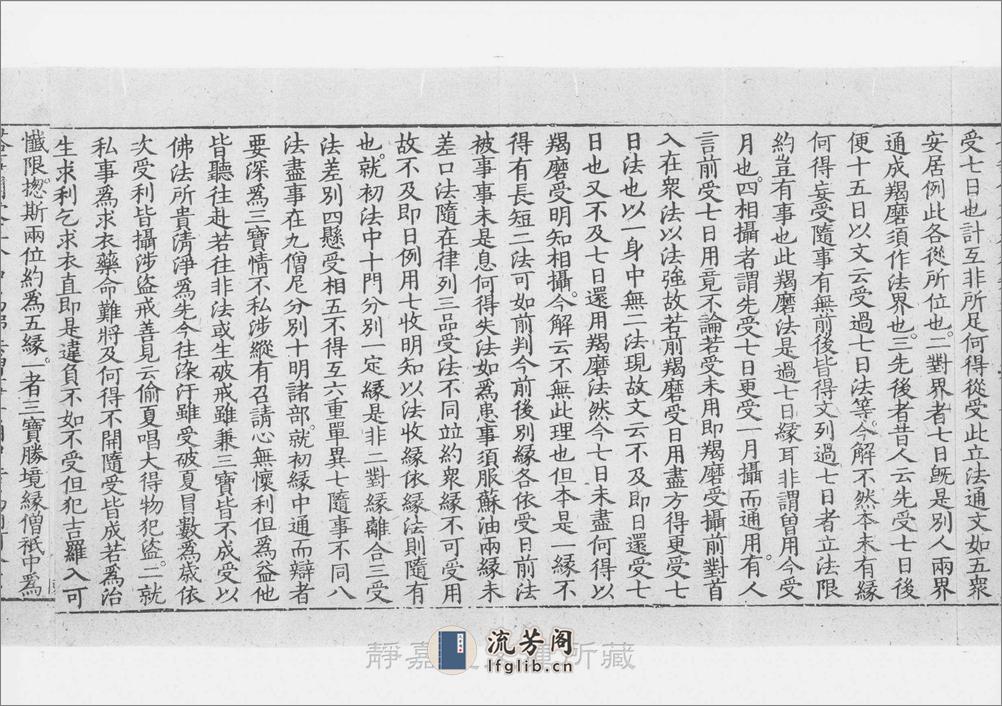 受七日也計互非所足何得從受此立法通文如五衆
安居例此各從所位也。二對界者七日既是別人兩界
通成羯磨須作法界也。三先後者昔人云先受七日後
便十五日以文云受過七日法等。今解不然本未有縁
何得妄受隨事有無前後皆得文列過七日者立法限
約豈有事也此羯磨法是過七日縁耳非謂曽用今受
月也。四相攝者謂先受七日更受一月攝而通用。有人
言前受七日用竟不論若受未用即羯磨受攝前對首
入在衆法以法強故若前羯磨受日用盡方得更受七
日法也以一身中無二法現故文云不及即日還受七
日也又不及七日還用羯磨法然今七日未盡何得以
羯磨受明知相攝。今解云不無此理也但本是一縁不
得有長短二法可如前判今前後別縁各依受日前法
被事事未是息何得失法如爲患事須服蘇油兩縁未
差口法隨在律列三品受法不同並約衆縁不可受用
故不及即日例用七收明知以法收縁依縁法則隨有
也。就初法中十門分別一定縁是非二對縁離合三受
法差別四懸受相五不得互六重單異七隨事不同八
法盡事在九僧尼分別十明諸部。就初縁中通而辯者
要深爲三寶情不私涉縱有召請心無懷利但爲益他
皆聽往赴若往非法或生破戒雖兼三寶皆不成受以
佛法所貴清淨爲先今往染汙雖受破夏冒數爲歲依
次受利皆攝涉盜戒善見云偷夏唱大得物犯盜。二就
私事爲求衣藥命難將及何得不開隨受皆成若爲治
生求利乞求衣直即是違負不如不受但犯吉羅入可
懺限。揔斯兩位約爲五縁。一者三寶勝境縁僧祇中爲
靜嘉
所藏
流芳阁
lfglib.cn